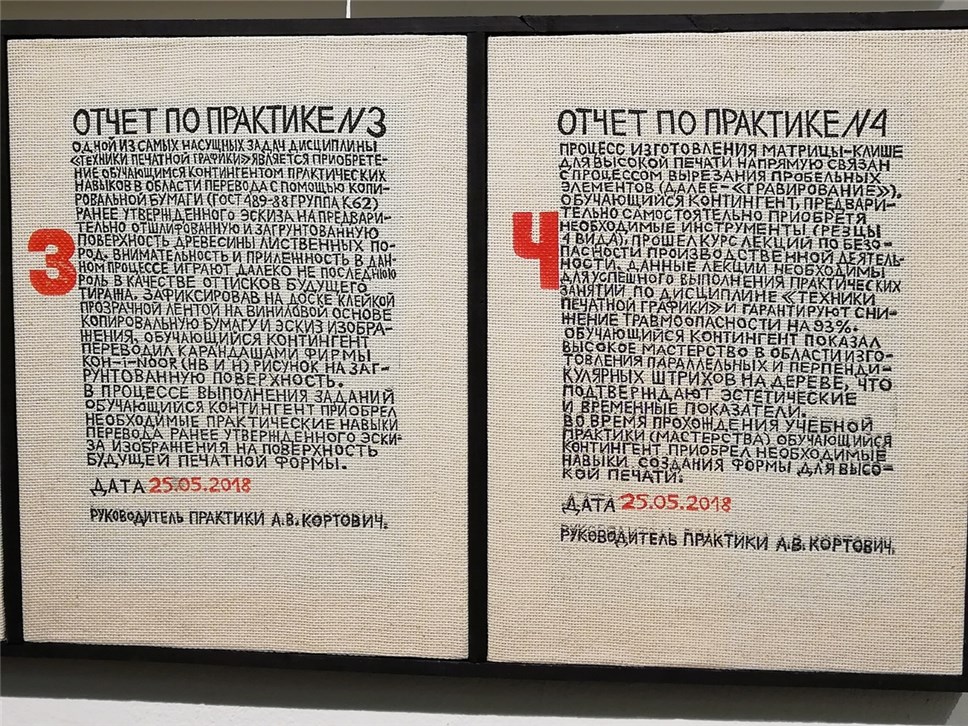 ОТЧЕТ ПО ПРАКТИКЕ N3
ОДНОЙ ИЗ САМЫХ НАСУЩНЫХ ЗАДАЧ ДИСЦИПЛИНЫ
«ТЕХНИКИ ПЕЧАТНОЙ ГРАФИКИ» ЯВЛЯЕТСЯ ПРИОБРЕТЕ-
НИЕ ОБУЧАЮЩИМСЯ КОНТИНГЕНТОМ ПРАКТИЧЕСКИХ
НАВЫКОВ В ОБЛАСТИ ПЕРЕВОДА С ПОМОЩЬЮ КОПИ-
РОВАЛЬНОЙ БУМАГИ (ГОСТ 489-88 ГРУППА К62)
РАНЕЕ УТВЕРЖДЕННОГО ЭСКИЗА НА ПРЕДВАРИ-
ТЕЛЬНО ОТШЛИФОВАННУЮ И ЗАГРУНТОВАННУЮ
ПОВЕРХНОСТЬ ДРЕВЕСИНЫ ЛИСТВЕННЫХ ПО-
РОД. ВНИМАТЕЛЬНОСТЬ И ПРИЛЕЖНОСТЬ В ДАН-
НОМ ПРОЦЕССЕ ИГРАЮТ ДАЛЕКО НЕ ПОСЛЕДНЮЮ
РОЛЬ В КАЧЕСТВЕ ОТТИСКОВ БУДУЩЕГО
ТИРАЖА. ЗАФИКСИРОВАВ НА ДОСКЕ КЛЕЙКОЙ
ПРОЗРАЧНОЙ ЛЕНТОЙ НА ВИНИЛОВОЙ ОСНОВЕ
КОПИРОВАЛЬНУЮ БУМАГУ И ЭСКИЗ ИЗОБРА-
ЖЕНИЯ, ОБУЧАЮЩИЙСЯ КОНТИНГЕНТ
ПЕРЕВОДИЛ КАРАНДАШАМИ ФИРМЫ
КОН-I-NOOR (НВ И Н) РИСУНОК НА ЗАГ-
РУНТОВАННУЮ ПОВЕРХНОСТЬ.
В ПРОЦЕССЕ ВЫПОЛНЕНИЯ ЗАДАНИЙ
ОБУЧАЮЩИЙСЯ КОНТИНГЕНТ ПРИОБРЕЛ
НЕОБХОДИМЫЕ ПРАКТИЧЕСКИЕ НАВЫКИ
ПЕРЕВОДА РАНЕЕ УТВЕРЖДЕННОГО ЭСКИ-
ЗА ИЗОБРАЖЕНИЯ НА ПОВЕРХНОСТЬ
БУДУЩЕЙ ПЕЧАТНОЙ ФОРМЫ.
ДАТА 25.05.2018
РУКОВОДИТЕЛЬ ПРАКТИКИ А.В. КОРТОВИЧ.
3
ОТЧЕТ ПО ПРАКТИКЕ N4
ПРОЦЕСС ИЗГОТОВЛЕНИЯ МАТРИЦЫ-КЛИШЕ
ДЛЯ ВЫСОКОЙ ПЕЧАТИ НАПРЯМУЮ СВЯЗАН
С ПРОЦЕССОМ ВЫРЕЗАНИЯ ПРОБЕЛЬНЫХ
ЭЛЕМЕНТОВ (ДАЛЕЕ-«ГРАВИРОВАНИЕ»).
ОБУЧАЮЩИЙСЯ КОНТИНГЕНТ, ПРЕДВАРИ-
ТЕЛЬНО САМОСТОЯТЕЛЬНО ПРИОБРЕТЯ
НЕОБХОДИМЫЕ ИНСТРУМЕНТЫ (РЕЗЦЫ
4 ВИДА), ПРОШЕЛ КУРС ЛЕКЦИЙ ПО БЕЗО-
ПАСНОСТИ ПРОИЗВОДСТВЕННОЙ ДЕЯТЕЛЬ-
НОСТИ. ДАННЫЕ ЛЕКЦИИ НЕОБХОДИМЫ
ДЛЯ УСПЕШНОГО ВЫПОЛНЕНИЯ ПРАКТИЧЕСКИХ
ЗАНЯТИЙ ПО ДИСЦИПЛИНЕ «ТЕХНИКИ
ПЕЧАТНОЙ ГРАФИКИ» И ГАРАНТИРУЮТ СНИ-
ЖЕНИЕ ТРАВМООПАСНОСТИ НА 93%.
ОБУЧАЮЩИЙСЯ КОНТИНГЕНТ ПОКАЗАЛ
ВЫСОКОЕ МАСТЕРСТВО В ОБЛАСТИ ИЗГО-
ТОВЛЕНИЯ ПАРАЛЛЕЛЬНЫХ И ПЕРПЕНДИ-
КУЛЯРНЫХ ШТРИХОВ НА ДЕРЕВЕ, ЧТО
ПОДТВЕРЖДАЮТ ЭСТЕТИЧЕСКИЕ
И ВРЕМЕННЫЕ ПОКАЗАТЕЛИ.
ВО ВРЕМЯ ПРОХОЖДЕНИЯ УЧЕБНОЙ
ПРАКТИКИ (МАСТЕРСТВА) ОБУЧАЮЩИЙСЯ
КОНТИНГЕНТ ПРИОБРЕЛ НЕОБХОДИМЫЕ
НАВЫКИ СОЗДАНИЯ ФОРМЫ ДЛЯ ВЫСО-
КОЙ ПЕЧАТИ.
ДАТА 25.05.2018
РУКОВОДИТЕЛЬ ПРАКТИКИ А.В. КОРТОВИЧ.
4